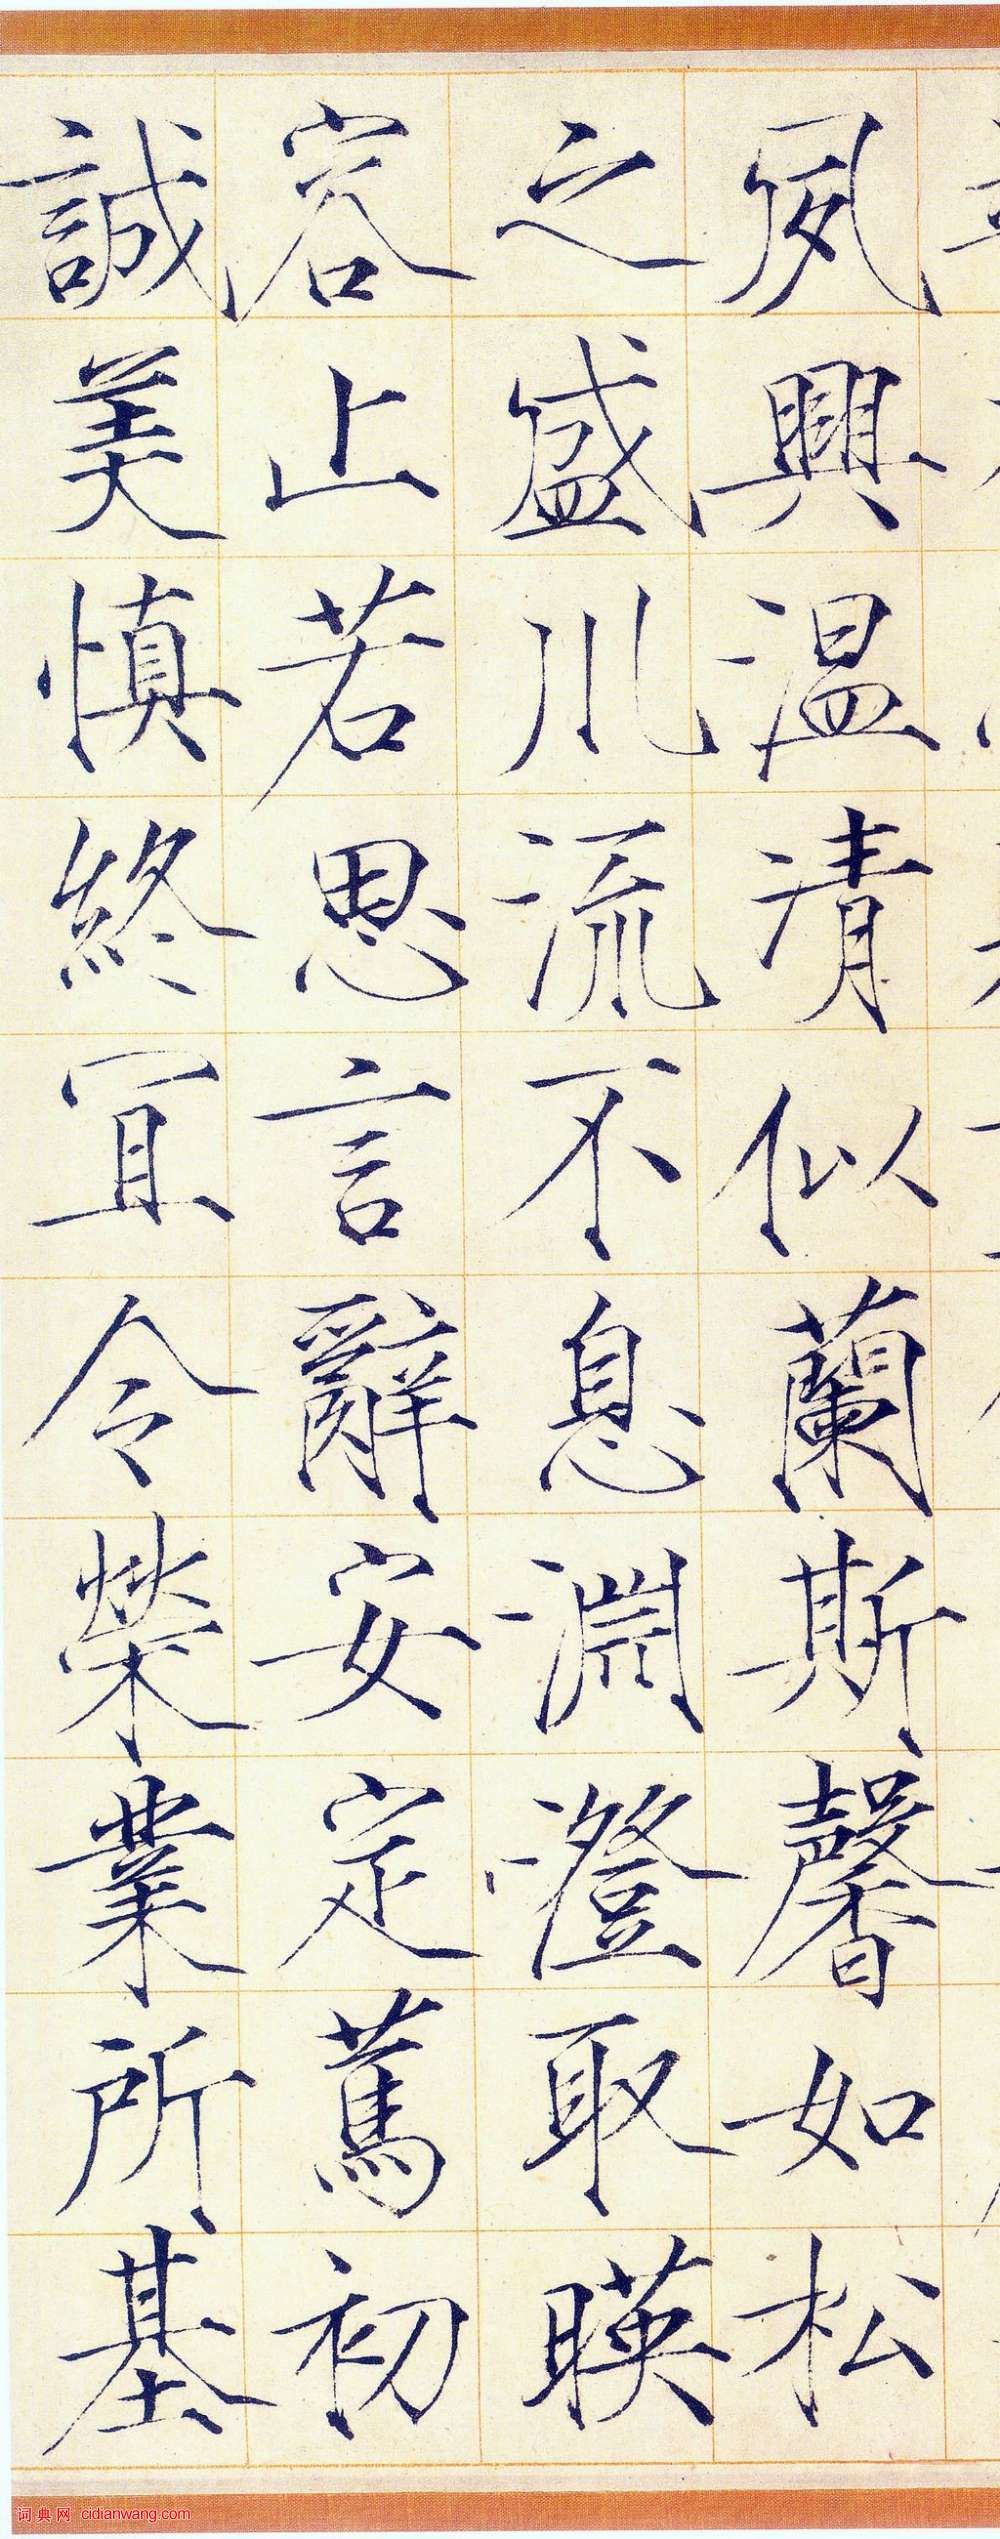 夙興温凊似蘭斯馨如松
之盛川流不息淵澄取暎
容止若思言辭安定篤初
誠美慎終宜令榮業所基
词典网 cidianwang.com